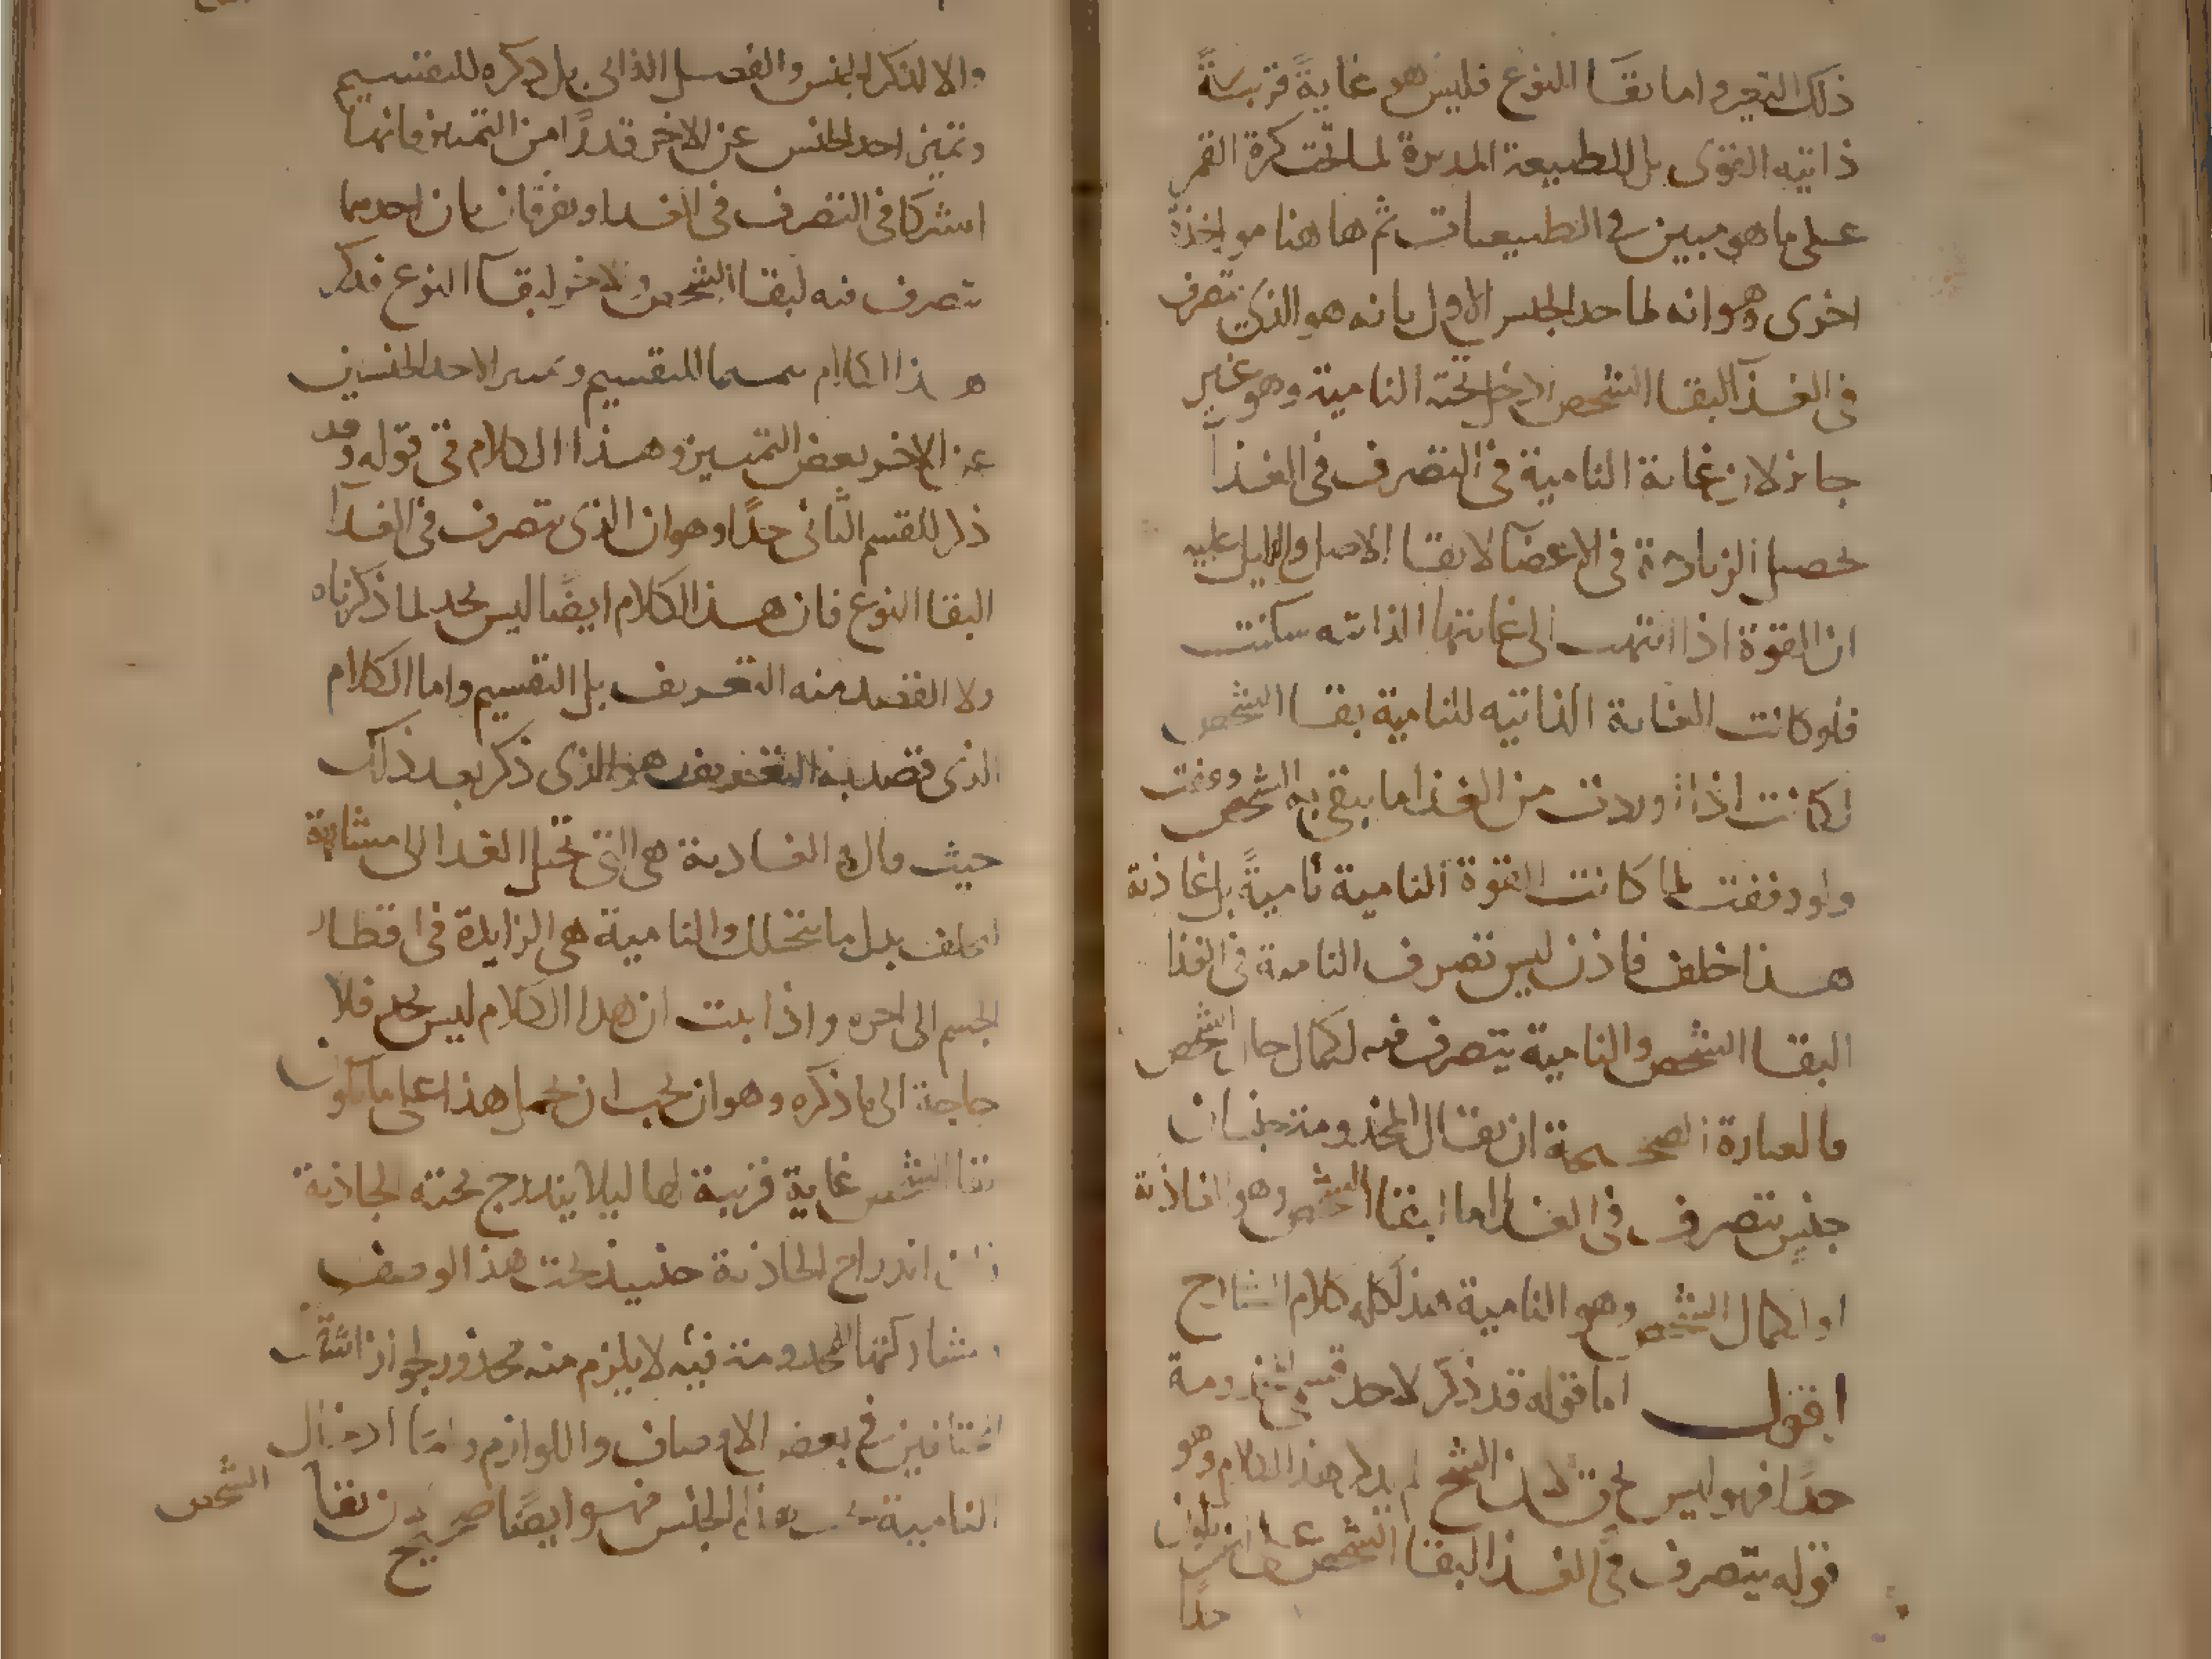 ذلك التغير واما بقآ النوع فليس هو غايةً قريبةً
ذاتيه القوى بل للطبيعة المدبرة لما تحت كرة القمر
على ما هو مبين في الطبيعيات ثم ها هنا مواخذة
اخرى وهو انه لما حد الجنس الاول بانه هو الذى يتصرف
فى الغذآ لبقا الشخص ادخل تحته النامية وهو غير
جايز لان غاية النامية فى التصرف فى الغذآ
تحصيل الزيادة فى الاعضآ لا بقا الاصل والدليل عليه
ان القوة اذا انتهت الى غايتها الذاتيه سكنت
فلو كانت الغاية الذاتيه للنامية بقا الشخص
لكانت اذا اوردت من الغذا ما يبقى به الشخص وقفت
ولو وقفت لما كانت القوة النامية ناميةً بل غاذية
هذا خلف فاذن ليس تصرف النامية فى الغذا
لبقا الشخص والنامية يتصرف فيه لكمال حال الشخص
فالعبارة الصحيحة ان يقال المخدومة جنسان
جنس يتصرف فى الغذا اما لبقا الشخص وهو الغاذية
او لكمال الشخص وهو النامية هذا كله كلام الشارح
اقول اما قوله قد ذكر لاحد قسمى المخدومة
حدًا فهو ليس بحق لان الشيخ لم يذكر هذا الكلام وهو
قوله يتصرف فى الغذا لبقا الشخص على ان يكون
حدًا
والا لذكر الجنس والفصل الذاتى بل ذكره للتقسيم
وتميز احد الجنس عن الاخر قدرًا من التميز فانهما
اشتركا فى التصرف فى الغدا ويفرقان بان احدهما
يتصرف فيه لبقا الشخص والاخر لبقآ النوع فذكر
هذا الكلام للتقسيم وتميز لاحد الجنسين
عن الاخر بعض التميز وهذا الكلام فى قوله وقد
ذكر للقسم الثانى حدًا وهو ان الذى يتصرف فى الغدآ
لبقا النوع فان هذا الكلام ايضًا ليس بحد لما ذكرناه
ولا القصد منه التعريف بل التقسيم واما الكلام
الذى قصد به التعريف هو الذى ذكر بعد ذلك
حيث قال والغاذية هى التى تحيل الغدا الى مشابهة
بدل ما يتحلل والنامية هى الزايدة فى اقطار
الجسم الى اخره واذا ثبت ان هذا الكلام ليس بحد فلا
حاجة الى ما ذكره وهو ان يجب ان يحمل هذا على ما يكون
بقا الشخص غاية قريبة لها ليلا يندرج تحته الجاذبة
اندراج الجاذبة حينيذ تحت هذا الوصف
ومشاركتها المخدومة فيه لا يلزم منه محذور لجواز اشتراك
المتنافيين فى بعض الاوصاف واللوازم واما ادخال
النامية تحت هذا الجنس فهو ايضًا صحيح لان بقا الشخص